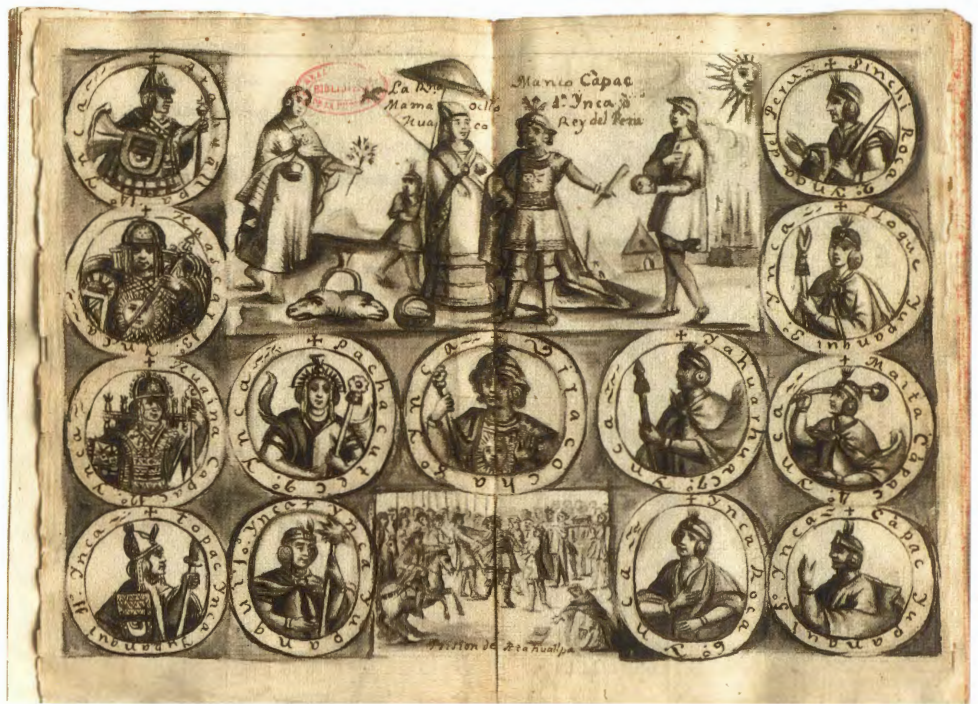 La
Mama Ocllo
Hua co
Manco Càpac
1º. Ynca, ò
Rey del Peru
BIBLIO
+ Sinchi Roca 2º. Ynga del Peru
+ Lloque Yupanqui 3º. Ynca
+ Maita Càpac 4º. Ynca
+ Càpac Yupanqui 5º. Ynca
+ Ynca Roca 6º. Ynca
+ Yahuarhuacac 7º. Ynca
Viracocha 8º. Ynca
+ Pachacutec 9º. Ynca
+ Ynca Yupanqui 10º. Ynca
+ Topac Ynca Yupanqui 11º. Ynca
+ Huaina Càpac Ynca
+ Huascar 13 Ynca
+ Atahuallpa 14º. Ynca
Prision de Atahuallpa